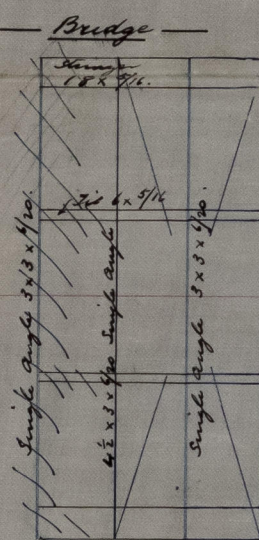 Bridge
Stringer
18 x 5/16.
Tie 6 x 5/16
Single Angle 3 x 3 x 6/20.
4½ x 3 x 6/20 Single Angle
Single Angle 3 x 3 x 6/20.